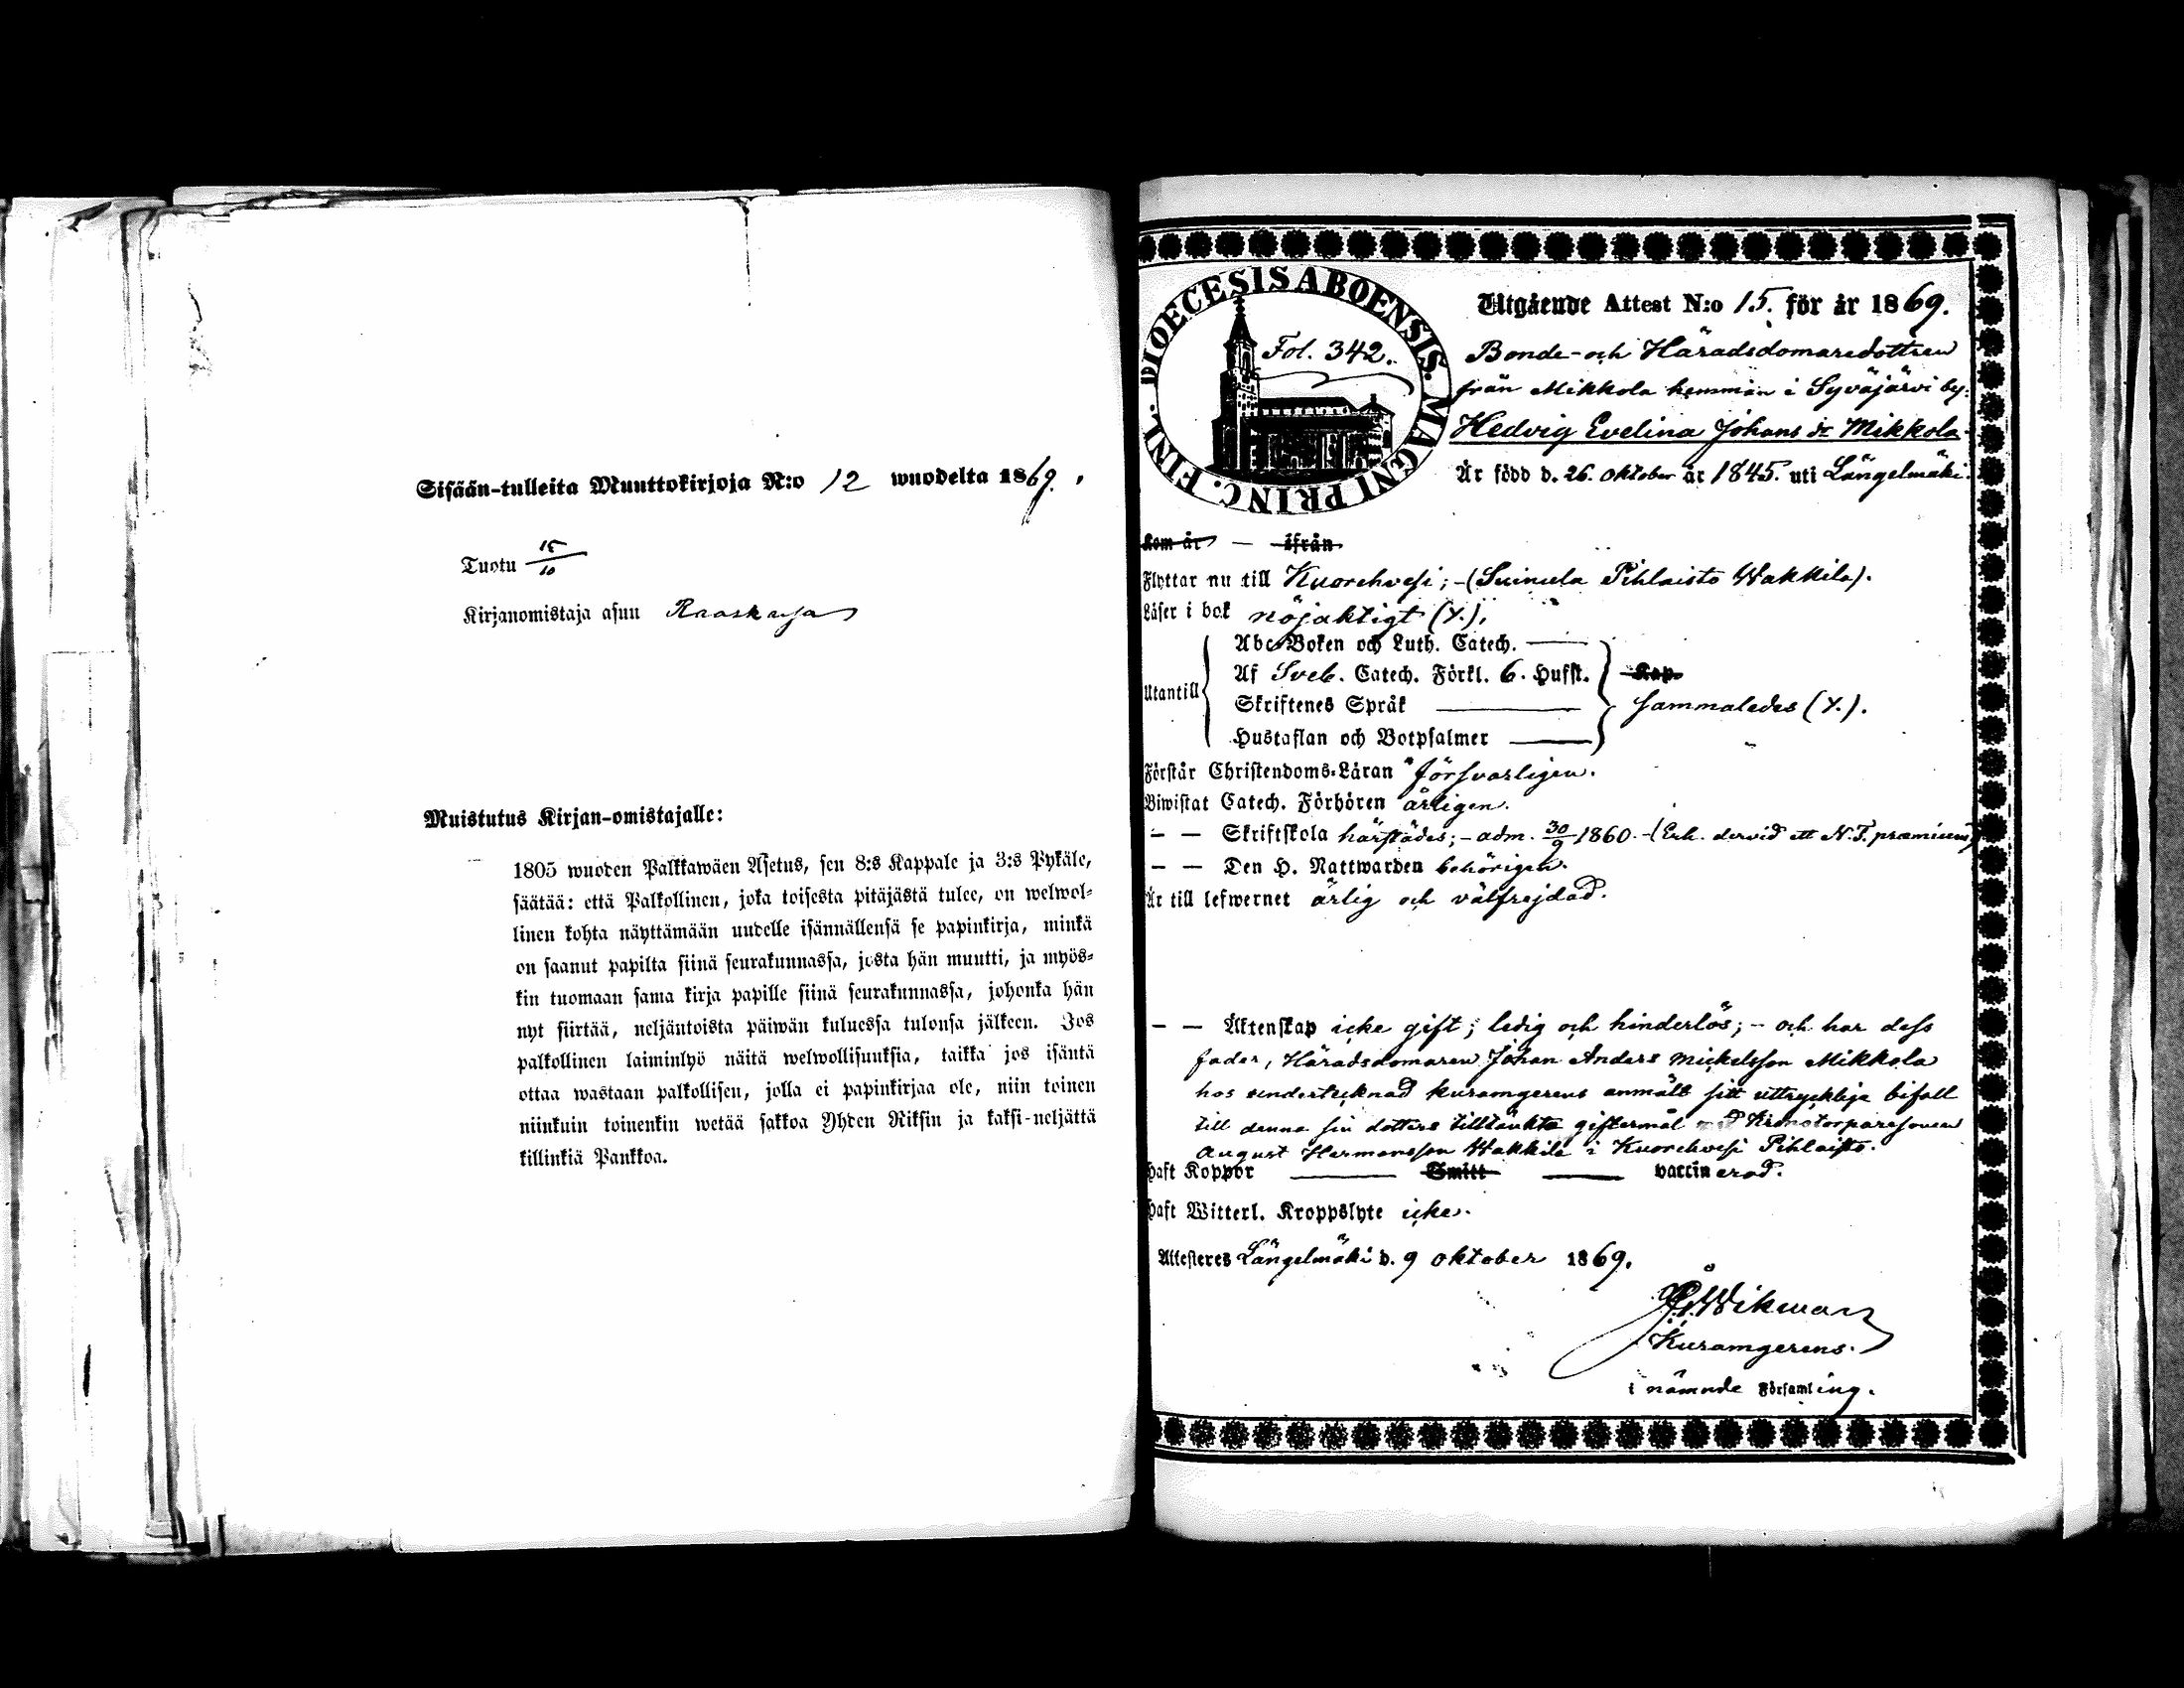 Sisään-tulleita Muuttokirjoja N:o 12 wuodelta 1869.
Tuotu 15/10
Kirjanomistaja asuu
Muistutus Kirjan-omistajalle:
1805 wuoden Palkkawäen Asetus, sen 8:s Kappale ja 3:s Pykäle,
säätää: että Palkollinen, joka toisesta pitäjästä tulee, on welwol-
linen kohta näyttämään uudelle isännällensä se papinkirja, minkä
on saanut papilta siinä seurakunnassa, josta hän muutti, ja myös-
kin tuomaan sama kirja papille siinä seurakunnassa, johonka hän
nyt siirtää, neljäntoista päiwän kuluessa tulonsa jälkeen. Jos
palkollinen laiminlyö näitä welwollisuuksia, taikka jos isäntä
ottaa wastaan palkollisen, jolla ei papinkirjaa ole, niin toinen
niinkuin toinenkin wetää sakkoa Yhden Riksin ja kaksi-neljättä
killinkiä Pankkoa.
DIOECESIS ABOENSIS. MAGNI PRINC. FINL.
Fol. 342.
Utgående Attest N:o 15. för år 1869.
Bonde- och Häradsdomaredottren
från Mikkola hemman i Syväjärvi by:
Hedvig Evelina Johans dr Mikkola
Är född d. 26. Oktober år 1845. uti Längelmäki.
Kom år — ifrån
Flyttar nu till Kuorehvesi; - (Suinula Pihlaisto Wakkila).
Läser i bok nöjaktigt (Y.).
Utantill
Abc-Boken och Luth. Catech.
Af Sveb. Catech. Förkl. 6. Hufst.
Kap.
Skriftenes Språk
sammaledes (Y.).
Hustaflan och Botpsalmer
Förstår Christendoms-Läran försvarligen.
Biwistat Catech. Förhören årligen.
— — Skriftskola härstädes; - adm. 30/9 1860. - (Erh. dervid ett N.T. præmium)
— — Den H. Nattwarden behörigen.
Är till lefwernet ärlig och välfrejdad.
— — Äktenskap icke gift; ledig och hinderlös; - och har dess
fader, Häradsdomaren Johan Anders Mickelsson Mikkola
hos undertecknad kuramgerens anmält sitt uttryckliga bifall
till denna sin dotters tilltänkta giftermål med Kronotorparesonen
August Hermansson Wakkila i Kuorehvesi Pihlaisto.
Haft Koppor Smitt vaccinerad.
Haft Witterl. Kroppslyte icke.
Attesteras Längelmäki d. 9 oktober 1869.
Wikman
Kuramgerens.
i nämnde Församling.